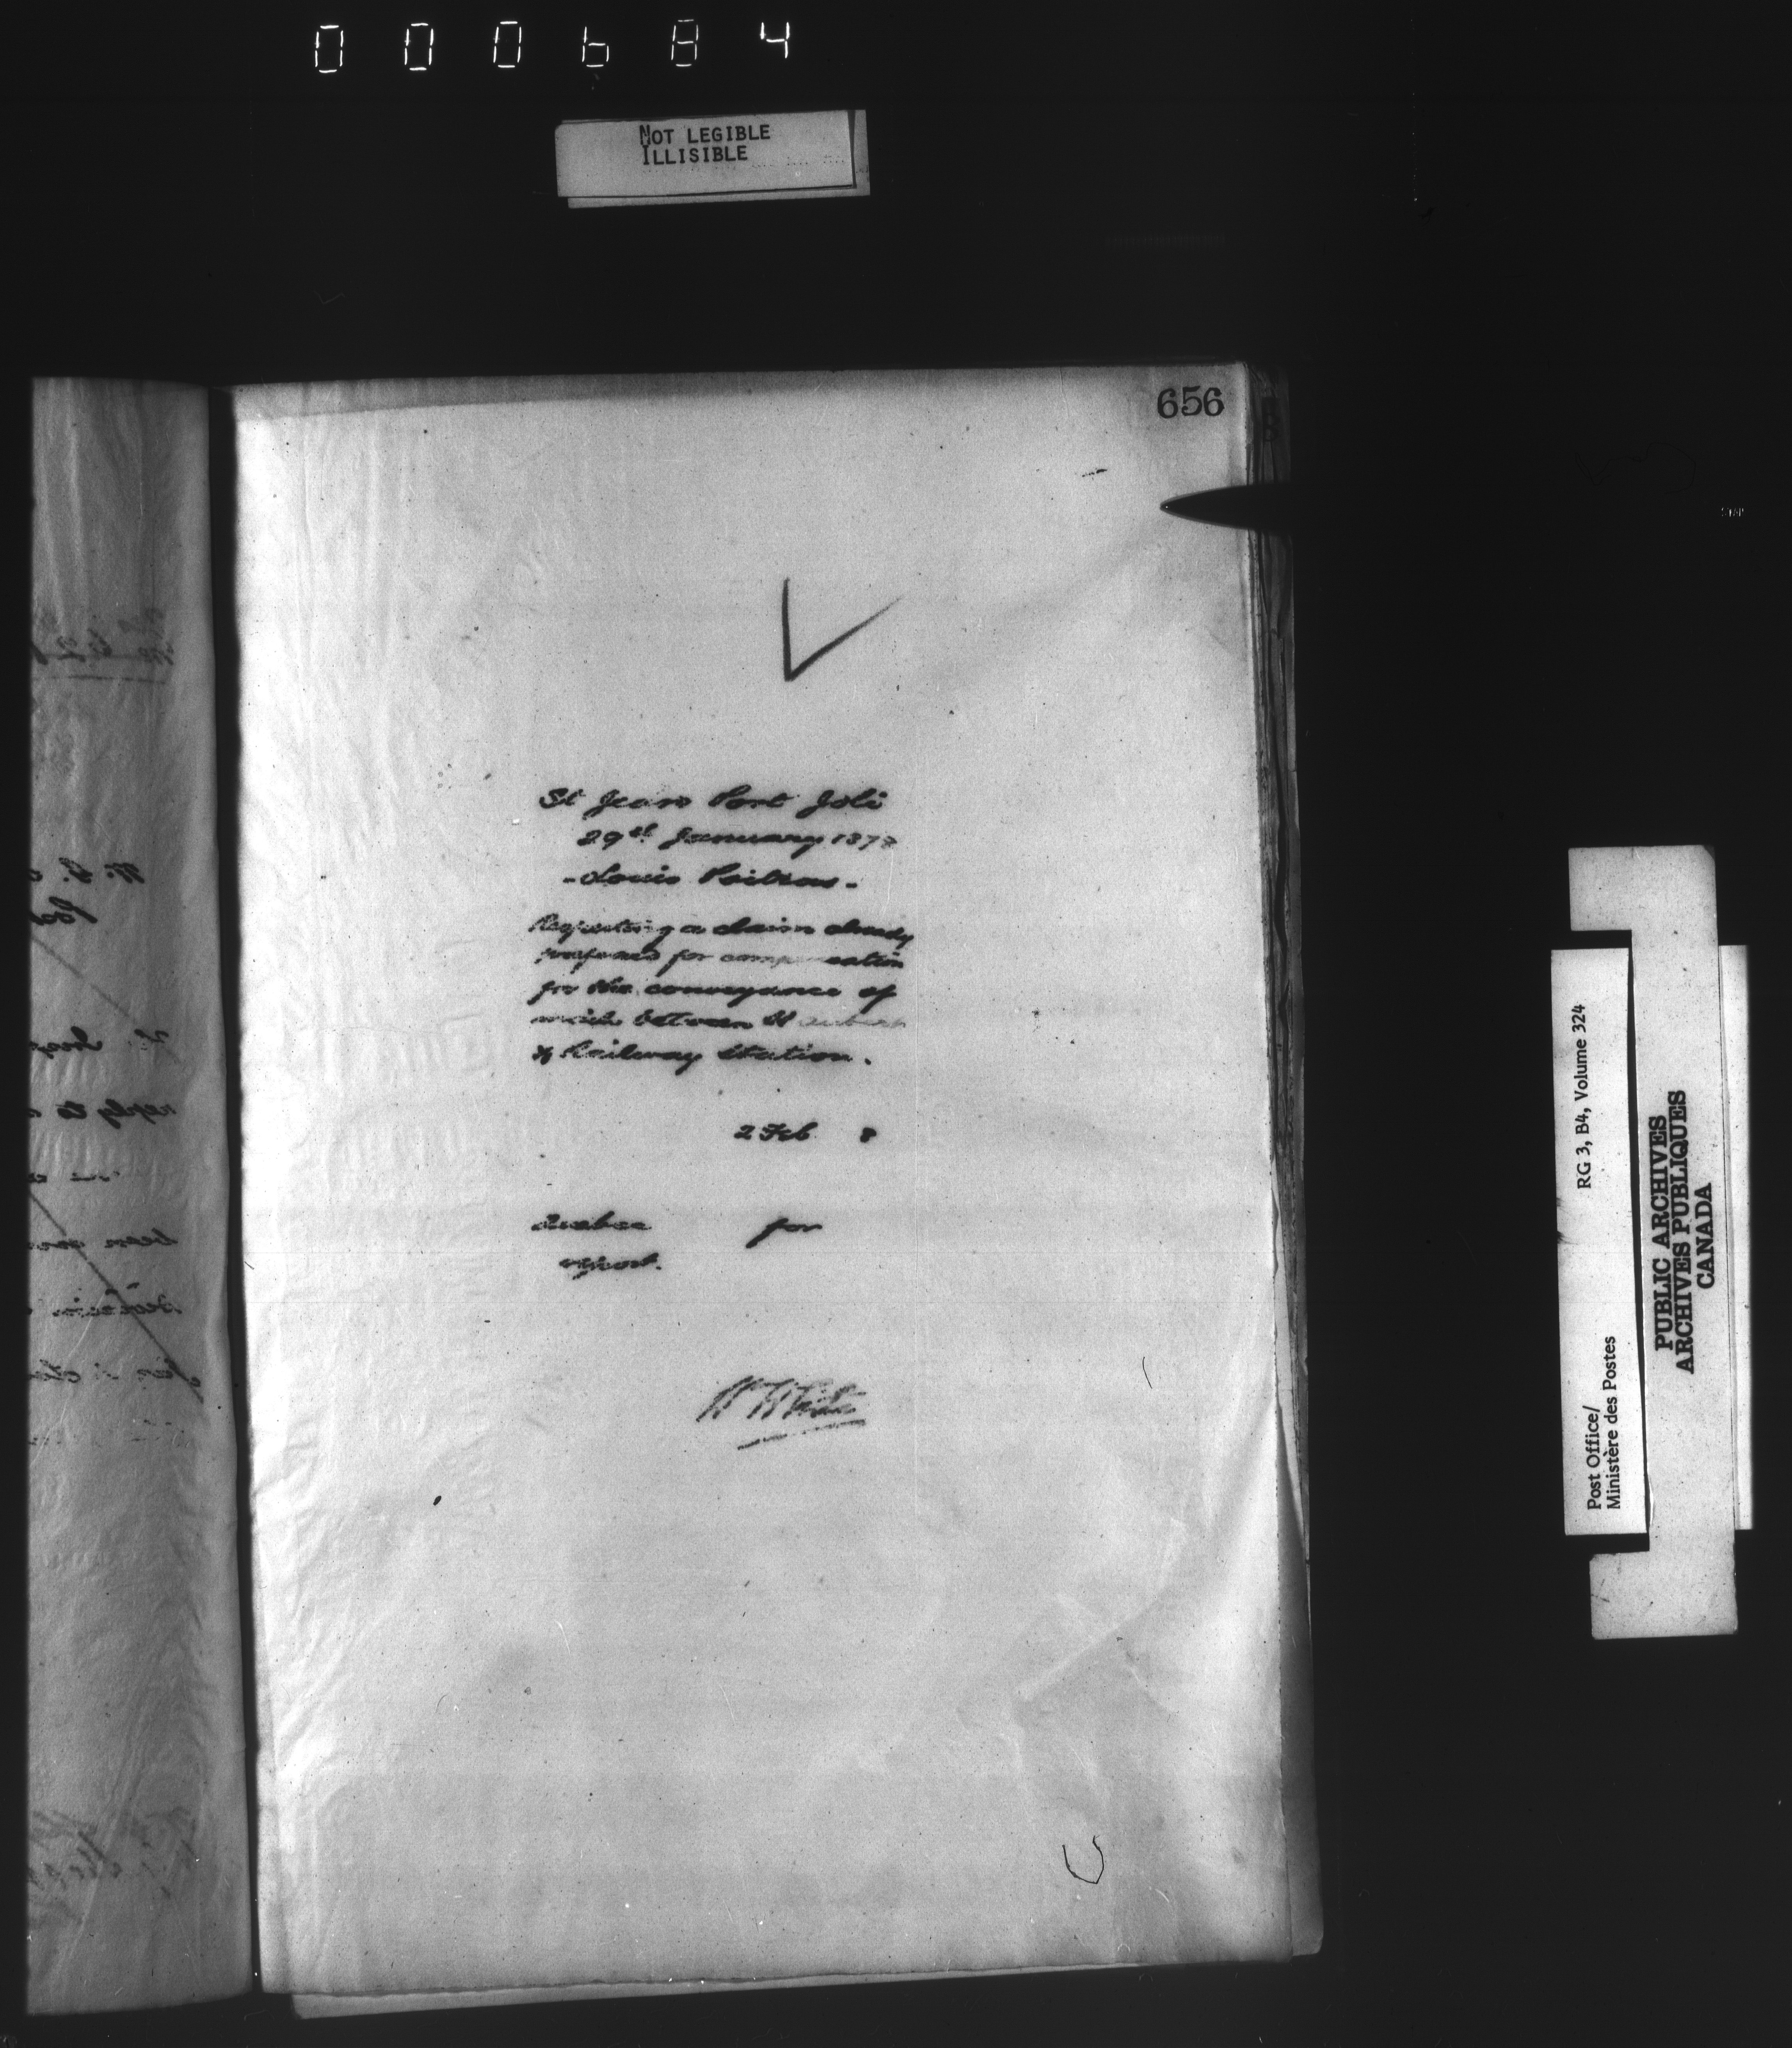 000684
NOT LEGIBLE
ILLISIBLE
656
St Jean Port Joli
29th January 1878
- Louis
a claim already
for compensation
for the conveyance of
mails between St
& Railway Station.
2 Feb 8
Quebec for
report.
W White
RG 3, B4, Volume 324
Post Office/
Ministère des Postes
PUBLIC ARCHIVES
ARCHIVES PUBLIQUES
CANADA